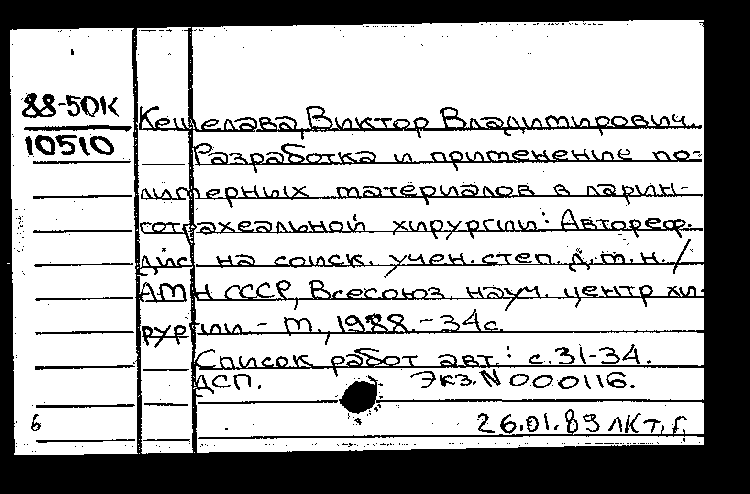 88-50К
10510
Кешелава, Виктор Владимирович.
Разработка и применение по-
лимерных материалов в ларин-
готрахеальной хирургии: Автореф.
дис. на соиск. учен. степ. д.т.н. /
АМН СССР, Всесоюз. науч. центр хи-
рургии. - М., 1988. - 34с.
Список работ авт.: с.31-34.
ДСП. Экз. N 000116.
6
26.01.89